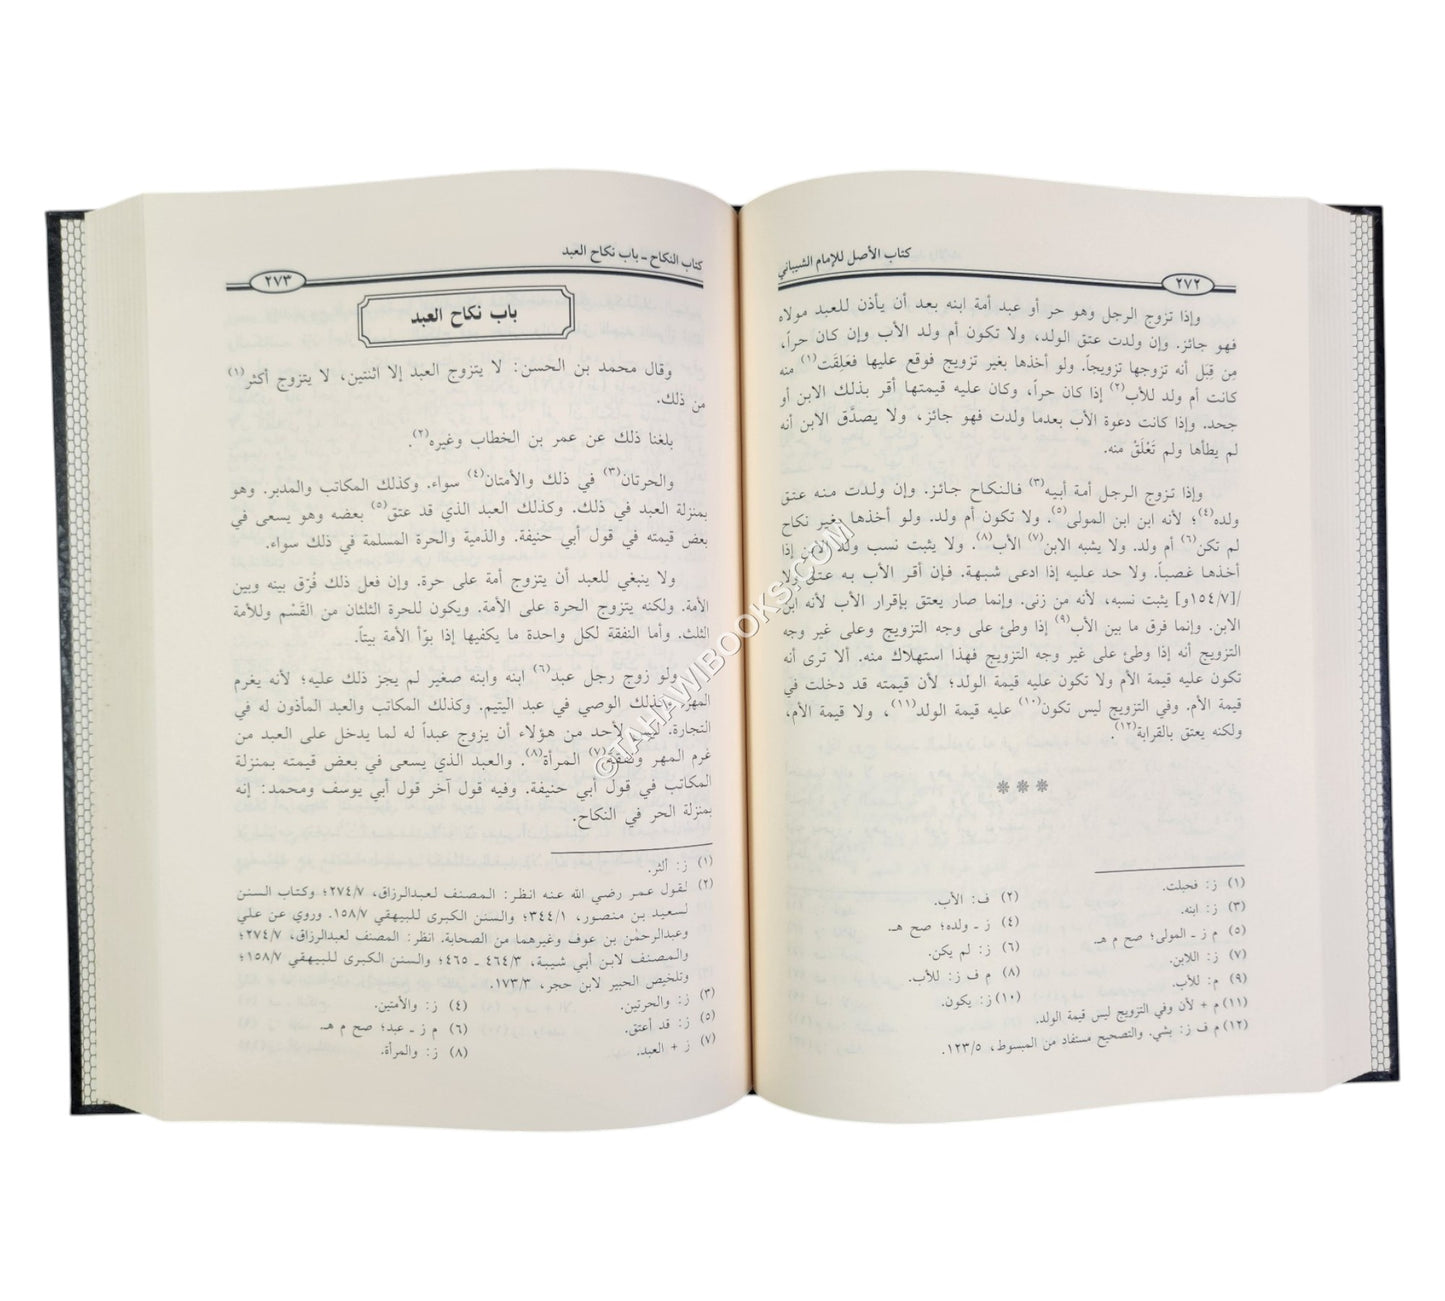 كتاب الأصل للإمام الشيباني
٢٧٢
وإذا تزوج الرجل وهو حر أو عبد أمة ابنه بعد أن يأذن للعبد مولاه
فهو جائز. وإن ولدت عتق الولد، ولا تكون أم ولد الأب وإن كان حراً،
مِن قِبَل أنه تزوجها تزويجاً. ولو أخذها بغير تزويج فوقع عليها فعَلِقَت(١) منه
كانت أم ولد للأب(٢) إذا كان حراً، وكان عليه قيمتها أقر بذلك الابن أو
جحد. وإذا كانت دعوة الأب بعدما ولدت فهو جائز، ولا يصدَّق الابن أنه
لم يطأها ولم تَعْلَقْ منه.
وإذا تزوج الرجل أمة أبيه(٣) فالنكاح جائز. وإن ولدت منه عتق
ولده(٤)؛ لأنه ابن ابن المولى(٥). ولا تكون أم ولد. ولو أخذها بغير نكاح
لم تكن(٦) أم ولد. ولا يشبه الابن(٧) الأب(٨). ولا يثبت نسب ولد الابن إذا
أخذها غصباً. ولا حد عليه إذا ادعى شبهة. فإن أقر الأب به عتق ولا
/[١٥٤/٧و] يثبت نسبه، لأنه من زنى. وإنما صار يعتق بإقرار الأب لأنه ابن
الابن. وإنما فرق ما بين الأب(٩) إذا وطئ على وجه التزويج وعلى غير وجه
التزويج أنه إذا وطئ على غير وجه التزويج فهذا استهلاك منه. ألا ترى أنه
تكون عليه قيمة الأم ولا تكون عليه قيمة الولد؛ لأن قيمته قد دخلت في
قيمة الأم. وفي التزويج ليس تكون(١٠) عليه قيمة الولد(١١)، ولا قيمة الأم،
ولكنه يعتق بالقرابة(١٢).
* * *
(١) ز: فحبلت. (٢) ف: الأب.
(٣) ز: ابنه. (٤) ز ـ ولده؛ صح هـ.
(٥) م ز ـ المولى؛ صح م هـ. (٦) ز: لم يكن.
(٧) ز: اللابن. (٨) م ف ز: للأب.
(٩) م: للأب. (١٠) ز: يكون.
(١١) م + لأن وفي التزويج ليس قيمة الولد.
(١٢) م ف ز: بشي. والتصحيح مستفاد من المبسوط، ١٢٣/٥.
كتاب النكاح ـ باب نكاح العبد
٢٧٣
باب نكاح العبد
وقال محمد بن الحسن: لا يتزوج العبد إلا اثنتين، لا يتزوج أكثر(١)
من ذلك.
بلغنا ذلك عن عمر بن الخطاب وغيره(٢).
والحرتان(٣) في ذلك والأمتان(٤) سواء. وكذلك المكاتب والمدبر. وهو
بمنزلة العبد في ذلك. وكذلك العبد الذي قد عتق(٥) بعضه وهو يسعى في
بعض قيمته في قول أبي حنيفة. والذمية والحرة المسلمة في ذلك سواء.
ولا ينبغي للعبد أن يتزوج أمة على حرة. وإن فعل ذلك فُرّق بينه وبين
الأمة. ولكنه يتزوج الحرة على الأمة. ويكون للحرة الثلثان من القَسْم وللأمة
الثلث. وأما النفقة لكل واحدة ما يكفيها إذا بوّأ الأمة بيتاً.
ولو زوج رجل عبد(٦) ابنه وابنه صغير لم يجز ذلك عليه؛ لأنه يغرم
المهر. وكذلك الوصي في عبد اليتيم. وكذلك المكاتب والعبد المأذون له في
التجارة. ليس لأحد من هؤلاء أن يزوج عبداً له لما يدخل على العبد من
غرم المهر ونفقة(٧) المرأة(٨). والعبد الذي يسعى في بعض قيمته بمنزلة
المكاتب في قول أبي حنيفة. وفيه قول آخر قول أبي يوسف ومحمد: إنه
بمنزلة الحر في النكاح.
(١) ز: ألثر.
(٢) لقول عمر رضي الله عنه انظر: المصنف لعبدالرزاق، ٢٧٤/٧؛ وكتاب السنن
لسعيد بن منصور، ٣٤٤/١؛ والسنن الكبرى للبيهقي ١٥٨/٧. وروي عن علي
وعبدالرحمٰن بن عوف وغيرهما من الصحابة. انظر: المصنف لعبدالرزاق، ٢٧٤/٧؛
والمصنف لابن أبي شيبة، ٤٦٤/٣ ـ ٤٦٥؛ والسنن الكبرى للبيهقي ١٥٨/٧؛
وتلخيص الحبير لابن حجر، ١٧٣/٣.
(٣) ز: والحرتين. (٤) ز: والأمتين.
(٥) ز: قد أعتق. (٦) م ز ـ عبد؛ صح م هـ.
(٧) ز + العبد. (٨) ز: والمرأة.
©TAHAWIBOOKS.COM